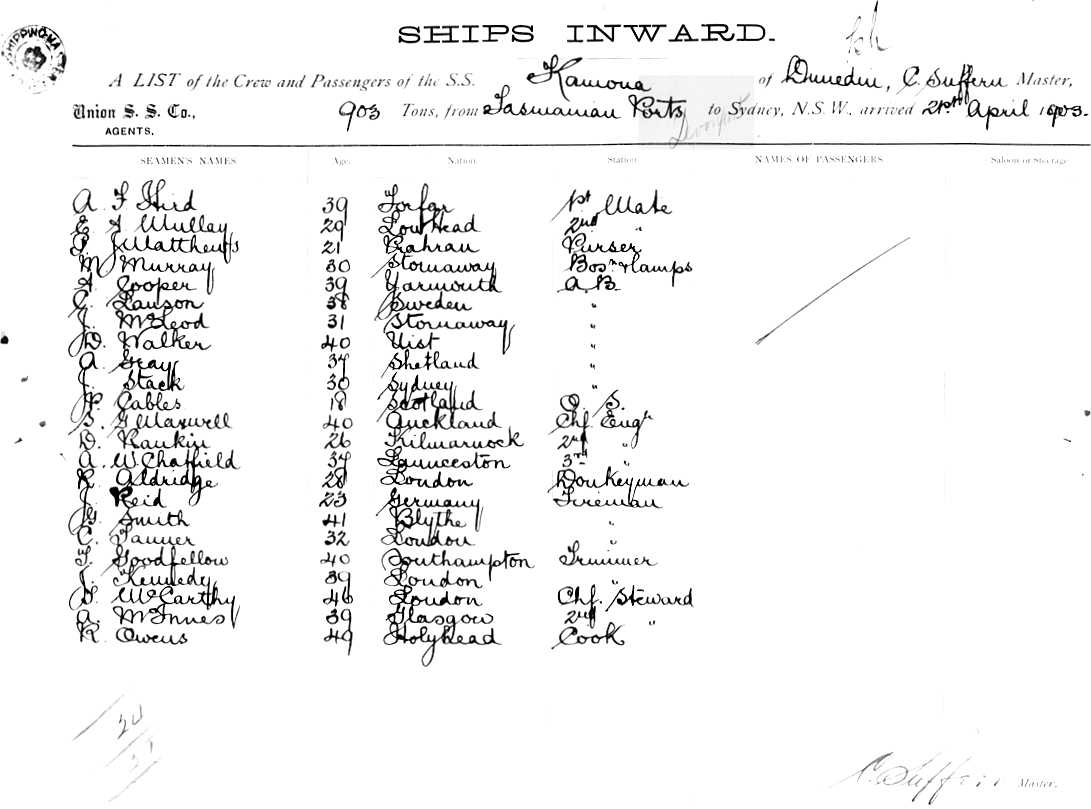 SHIPPING MASTER
SHIPS INWARD.
A LIST of the Crew and Passengers of the S.S. Kamona of Dunedin, C. Suffern Master,
Union S. S. Co., 903 Tons, from Tasmanian Ports to Sydney, N.S.W., arrived 21st April 1903.
AGENTS.
Devonport
SEAMEN'S NAMES Age Nation Station NAMES OF PASSENGERS Saloon or Steerage
A. F Hird 39 Forfar 1st Mate
E A Mulley 29 Low Head 2nd "
P. J Matthews 21 Prahran Purser
M Murray 30 Stornaway Bosn & Lamps
A Cooper 39 Yarmouth A.B.
C. Lawson 38 Sweden "
J. McLeod 31 Stornaway "
D. Walker 40 Uist "
A Gray 37 Shetland "
J. Stack 30 Sydney "
P. Cables 18 Scotland O. S.
S. G Maxwell 40 Auckland Chf. Engr
D. Rankin 26 Kilmarnock 2nd "
A. W Chaffield 37 Launceston 3rd "
R Aldridge 28 London Donkeyman
J. Reid 23 Germany Fireman
G. Smith 41 Blythe "
C. Tanner 32 London "
T. Goodfellow 40 Southampton Trimmer
J. Kennedy 39 London "
D. McCarthy 46 London Chf. Steward
A. McInnes 39 Glasgow 2nd "
R. Owens 49 Holyhead Cook
24
C. Suffern Master.